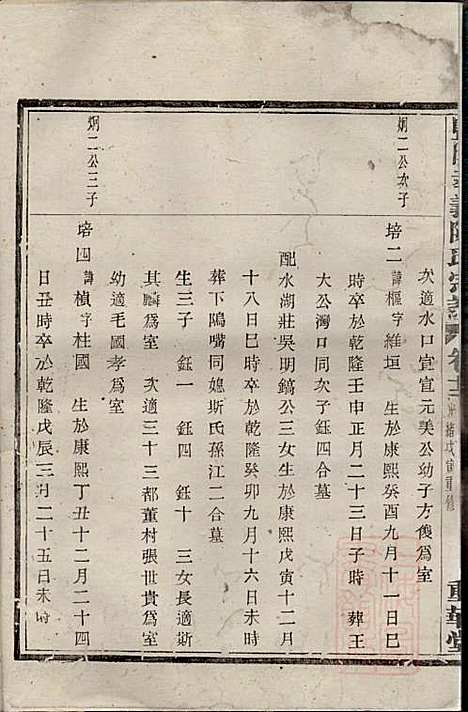 陳氏宗譜 卷十二 光緒戊寅重修
重華堂
次適水口宜宣元美公幼子方俊為室
炯二公次子
培二 諱樞字維垣 生於康熙癸酉九月十一日巳
時卒於乾隆壬申正月二十三日子時 葬王
大公灣口同次子鈺四合墓
配水湖莊吳明鎬公三女生於康熙戊寅十二月
十八日巳時卒於乾隆癸卯九月十六日未時
葬下鴡嘴同媳斯氏孫江二合墓
生三子 鈺一 鈺四 鈺十 三女長適斯
其麟為室 次適三十三都董村張世貴為室
幼適毛國孝為室
炯二公三子
培四 諱楨字柱國 生於康熙丁丑十二月二十四
日丑時卒於乾隆戊辰三月二十五日未時